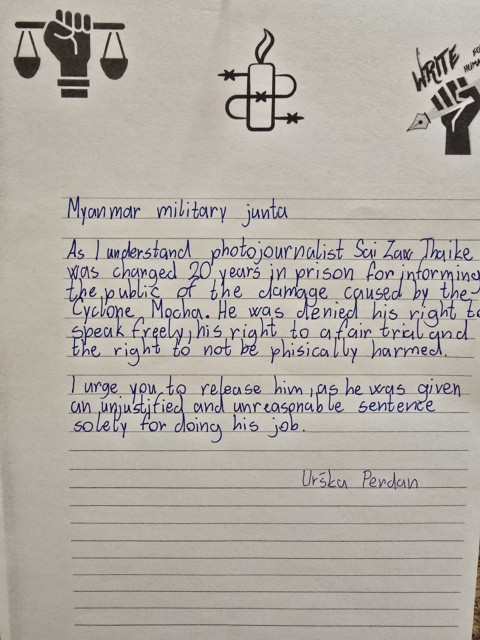 WRITE
FOR
HUMA
Myanmar military junta
As I understand photojournalist Sai Zaw Thaike
was charged 20 years in prison for informing
the public of the damage caused by the
Cyclone Mocha. He was denied his right to
speak freely, his right to a fair trial and
the right to not be phisically harmed.
I urge you to release him, as he was given
an unjustified and unreasonable sentence
solely for doing his job.
Urška Perdan